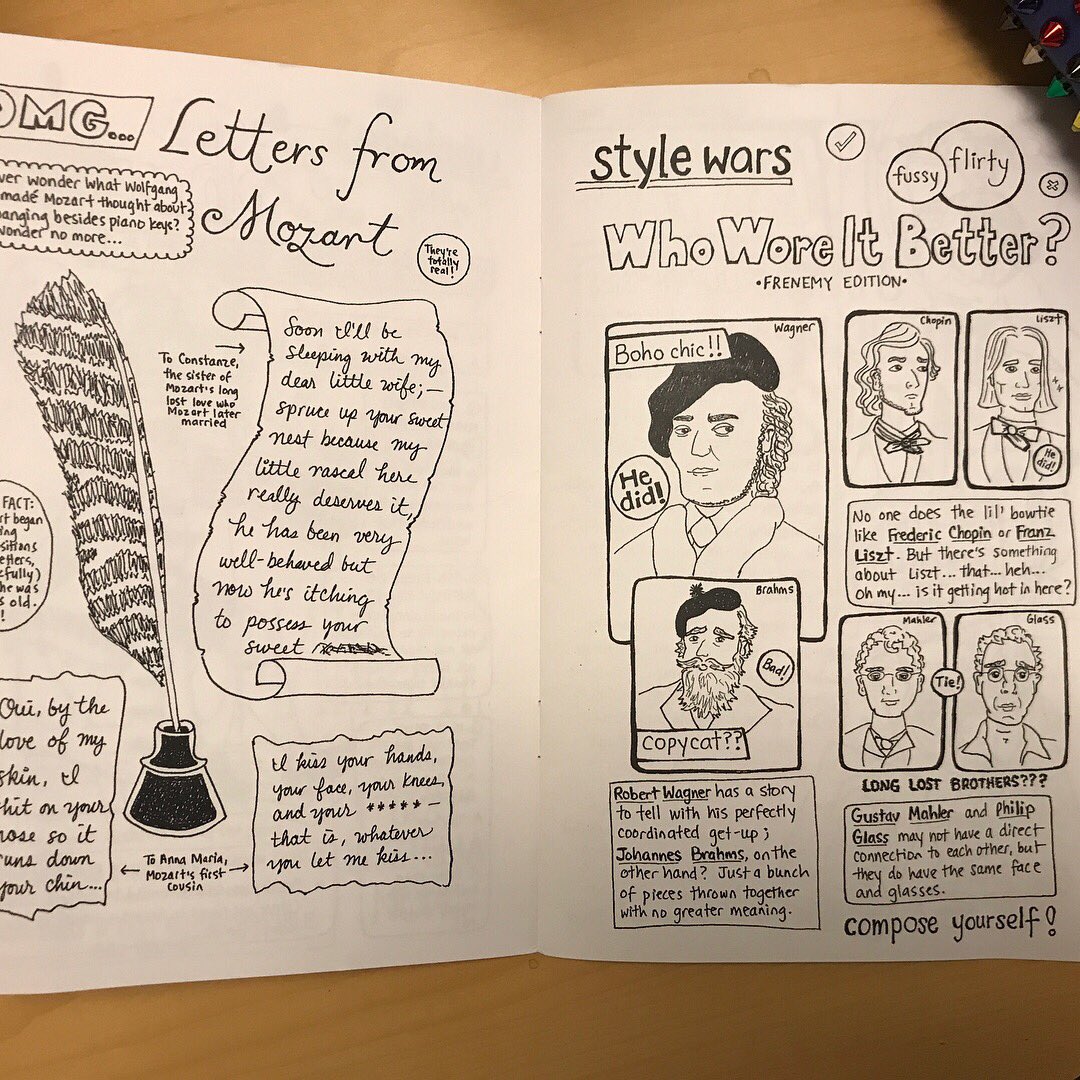 OMG...
Letters from
Mozart
wonder what Wolfgang
Mozart thought about
besides piano keys?
wonder no more...
They're
totally
real!
To Constanze,
the sister of
Mozart's long
lost love who
Mozart later
married
Soon I'll be
sleeping with my
dear little wife;—
spruce up your sweet
nest because my
little rascal here
really deserves it,
he has been very
well-behaved but
now he's itching
to possess your
sweet
FACT:
began
was
old.
Oui, by the
love of my
skin, I
on your
so it
runs down
your chin...
To Anna Maria,
Mozart's first
cousin
I kiss your hands,
your face, your knees
and your ***** —
that is, whatever
you let me kiss...
style wars
fussy
flirty
Who Wore It Better?
•FRENEMY EDITION•
Wagner
Boho chic!!
He
did!
Brahms
Bad!
copycat??
Robert Wagner has a story
to tell with his perfectly
coordinated get-up;
Johannes Brahms, on the
other hand? Just a bunch
of pieces thrown together
with no greater meaning.
Chopin
Liszt
He
did!
No one does the lil' bowtie
like Frederic Chopin or Franz
Liszt. But there's something
about Liszt... that... heh...
oh my... is it getting hot in here?
Mahler
Tie!
Glass
LONG LOST BROTHERS???
Gustav Mahler and Philip
Glass may not have a direct
connection to each other, but
they do have the same face
and glasses.
compose yourself!